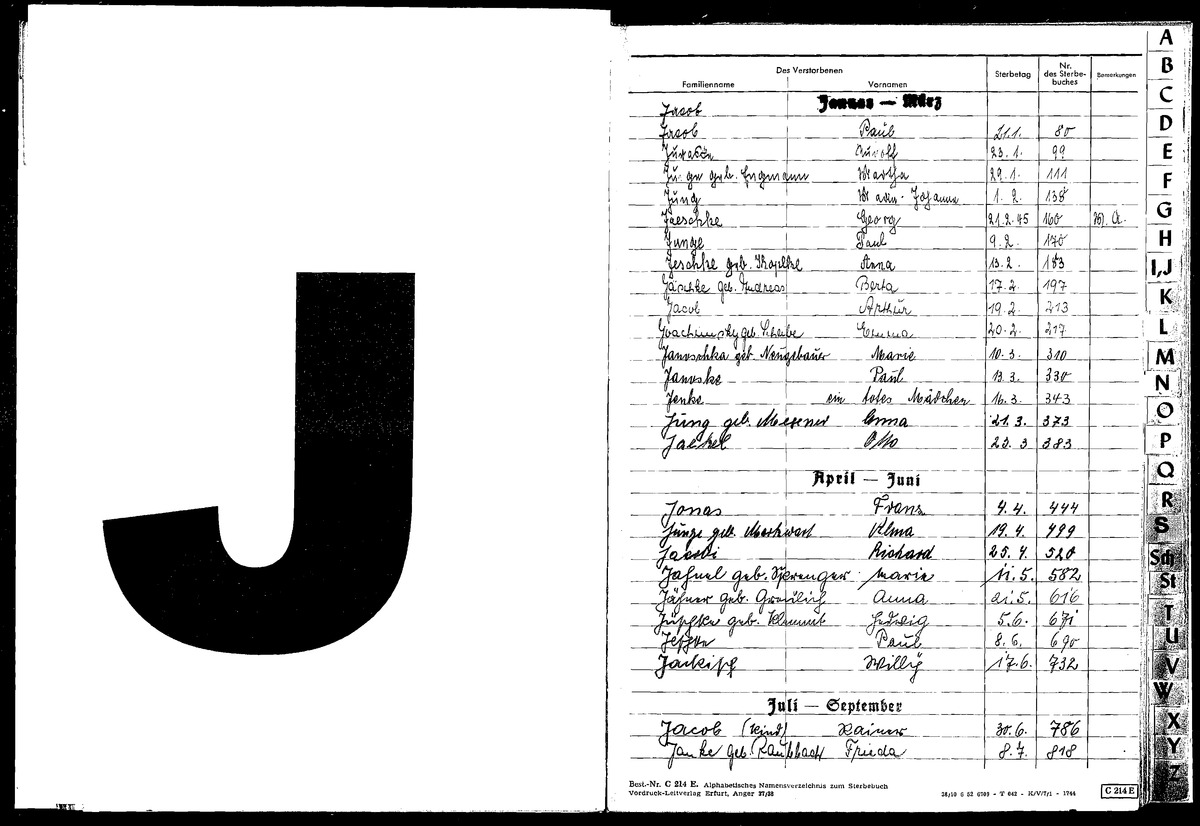 J
Des Verstorbenen
Familienname Vornamen Sterbetag Nr. des Sterbe-buches Bemerkungen
Januar — März
Jacob
Jacob Paul 21.1. 80
Rudolf 23.1. 99
geb. Engmann Martha 29.1. 111
Jung Johanna 1.2. 138
Jaeschke Georg 21.2.45 160
Junge Paul 9.2. 170
Jeschke geb. Anna 13.2. 183
Jäschke geb. Andreas Berta 17.2. 197
Jacob Arthur 19.2. 213
Joachimsky geb. Scheibe Emma 20.2. 217
Janoschka geb. Neugebauer Marie 10.3. 310
Janoske Paul 13.3. 330
Jenke ein totes Mädchen 16.3. 343
Jung geb. Anna 21.3. 373
Jaekel Otto 23.3 383
April — Juni
Jonas Franz 4.4. 444
Junge geb. Markwart Alma 19.4. 499
Richard 25.4. 520
Jahnel geb. Sprenger Marie 11.5. 582
Jähner geb. Greulich Anna 21.5. 616
Jüschke geb. Klammt Hedwig 5.6. 671
Paul 8.6. 690
Jackisch Willy 17.6. 732
Juli — September
Jacob (Kind) Rainer 30.6. 786
Janke geb. Frieda 8.7. 818
Best.-Nr. C 214 E. Alphabetisches Namensverzeichnis zum Sterbebuch
Vordruck-Leitverlag Erfurt, Anger 37/38
C 214 E
A
B
C
D
E
F
G
H
I,J
K
L
M
N
O
P
Q
R
S
Sch
St
T
U
V
W
X
Y
Z